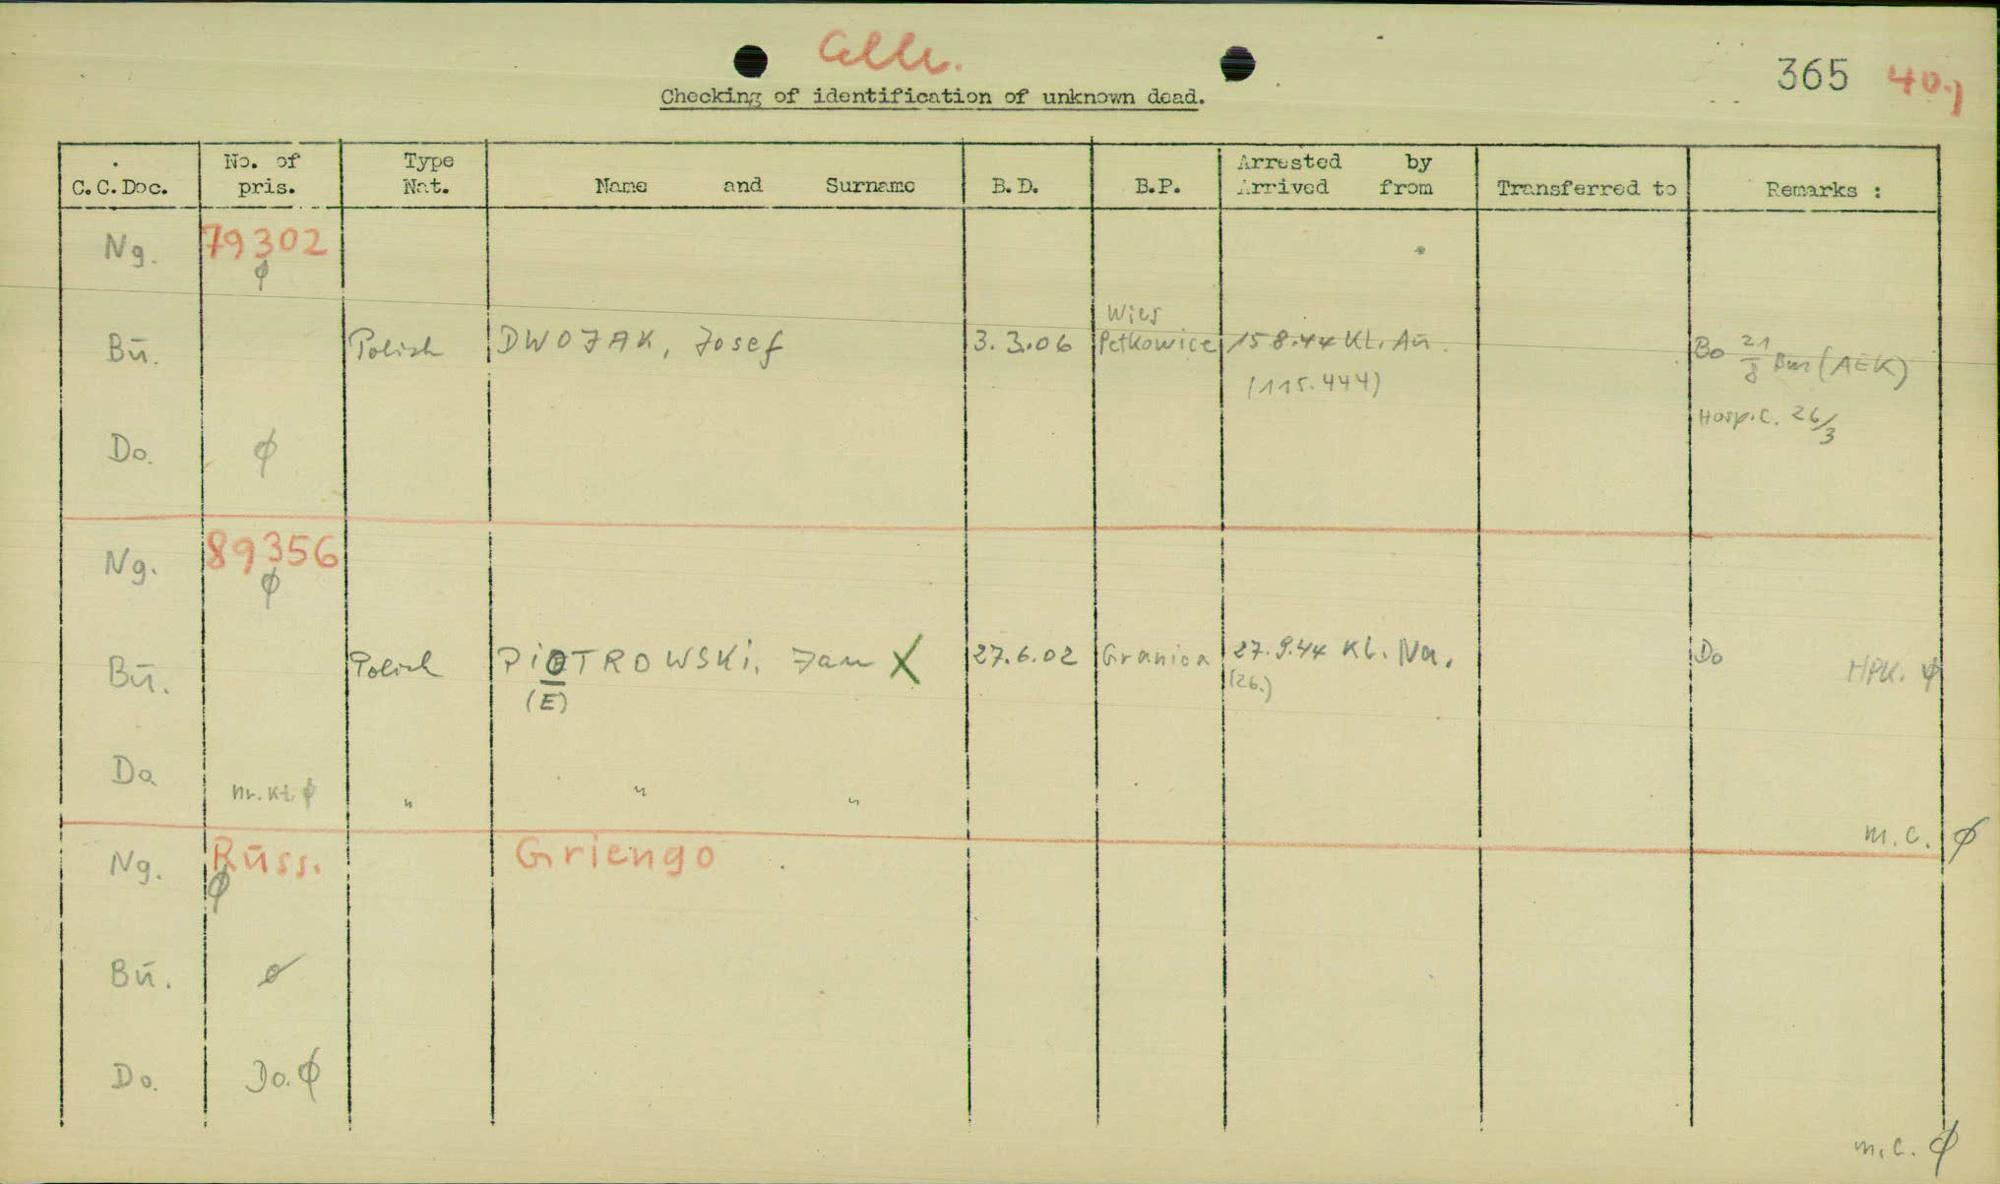 Celle.
365 40.)
Checking of identification of unknown dead.
C.C.Doc. No. of pris. Type Nat. Name and Surname B.D. B.P. Arrested by Arrived from Transferred to Remarks :
Ng. 79302
ø
Wies
Bū. Polish DWOJAK, Josef 3.3.06 Petkowice 15 8.44 KL. Au.
(115.444)
Bo 21/8 (AEK)
Hosp.C. 26/3
Do. ø
Ng. 89356
ø
Bū. Polish PiOTROWSKi, Jan X 27.6.02 Granica 27.9.44 KL. Na. Do HPK. ø
(E) (26.)
Da nr. Kt. ø " " "
m.c. ø
Ng. Rūss. Griengo
ø
Bū. ø
Do. Do. ø
m.c. ø